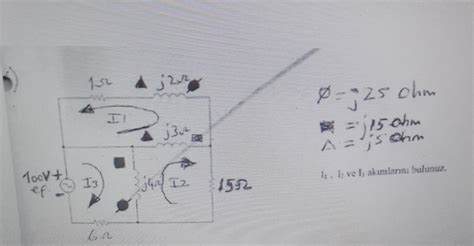 1Ω ▲ j2Ω
I1
j3Ω
100V +
ef. -
I3
j4Ω
I2
15Ω
6Ω
Ø = j25 Ohm
■ = j15 Ohm
△ = j5 Ohm
I₁ , I₂ ve I₃ akımlarını bulunuz.